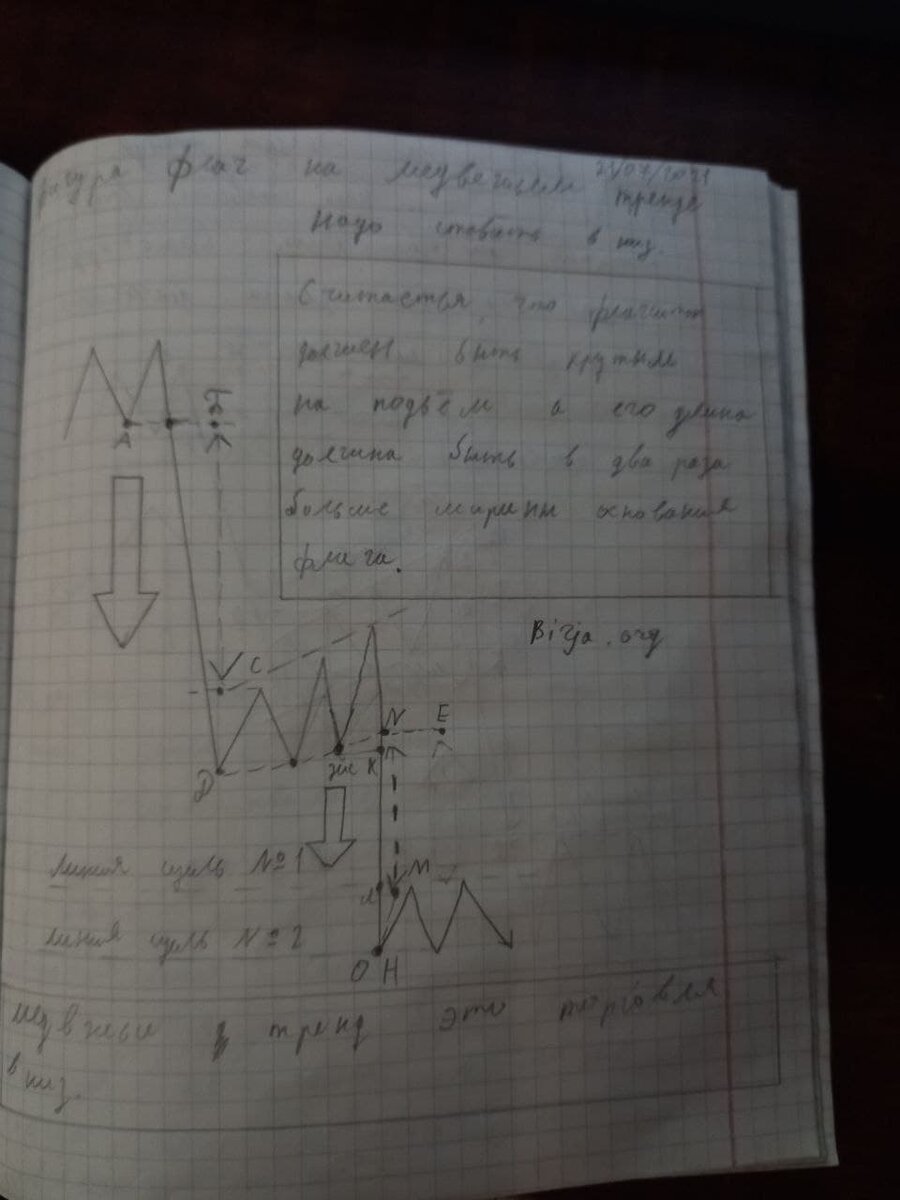 фигура флаг на медвежьем 21/07/2021
тренде
надо ставить в низ.
Считается, что флагшток
должен быть крутым
на подъём а его длина
должна быть в два раза
больше ширины основания
флага.
Birja.org
А Б
С
Д
N Е
Ж К
линия цель №1
Л М
линия цель №2
О Н
медвежье тренд это торговля
в низ.